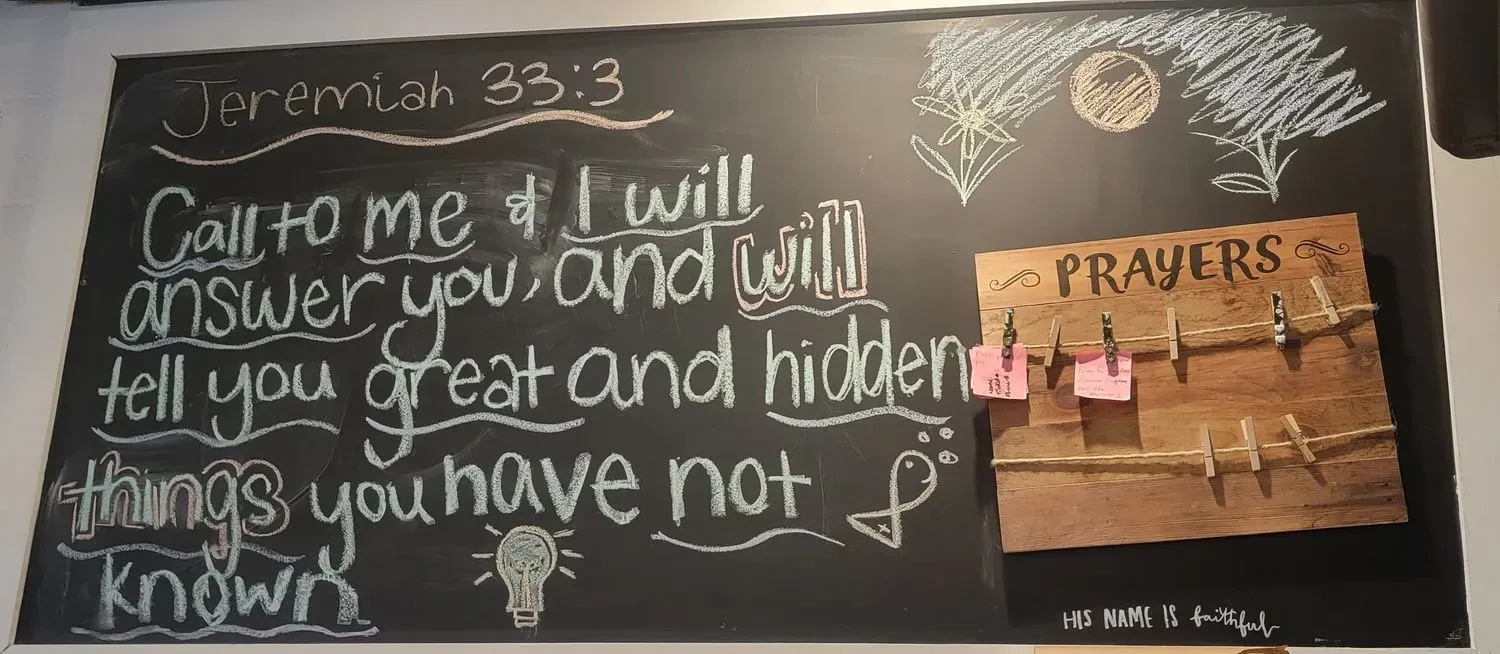 Jeremiah 33:3
Call to me & I will
answer you, and will
tell you great and hidden
things you have not
known
PRAYERS
HIS NAME IS faithful